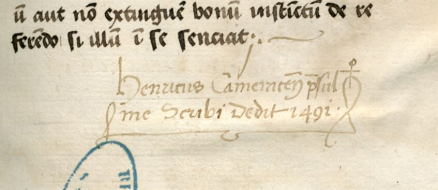 ū aut nō extinguē bonū instīctū de re
ferēdo si illū ī se senciat
Henricus Camericeñ p̄sul
me Scribi Dedit 1491